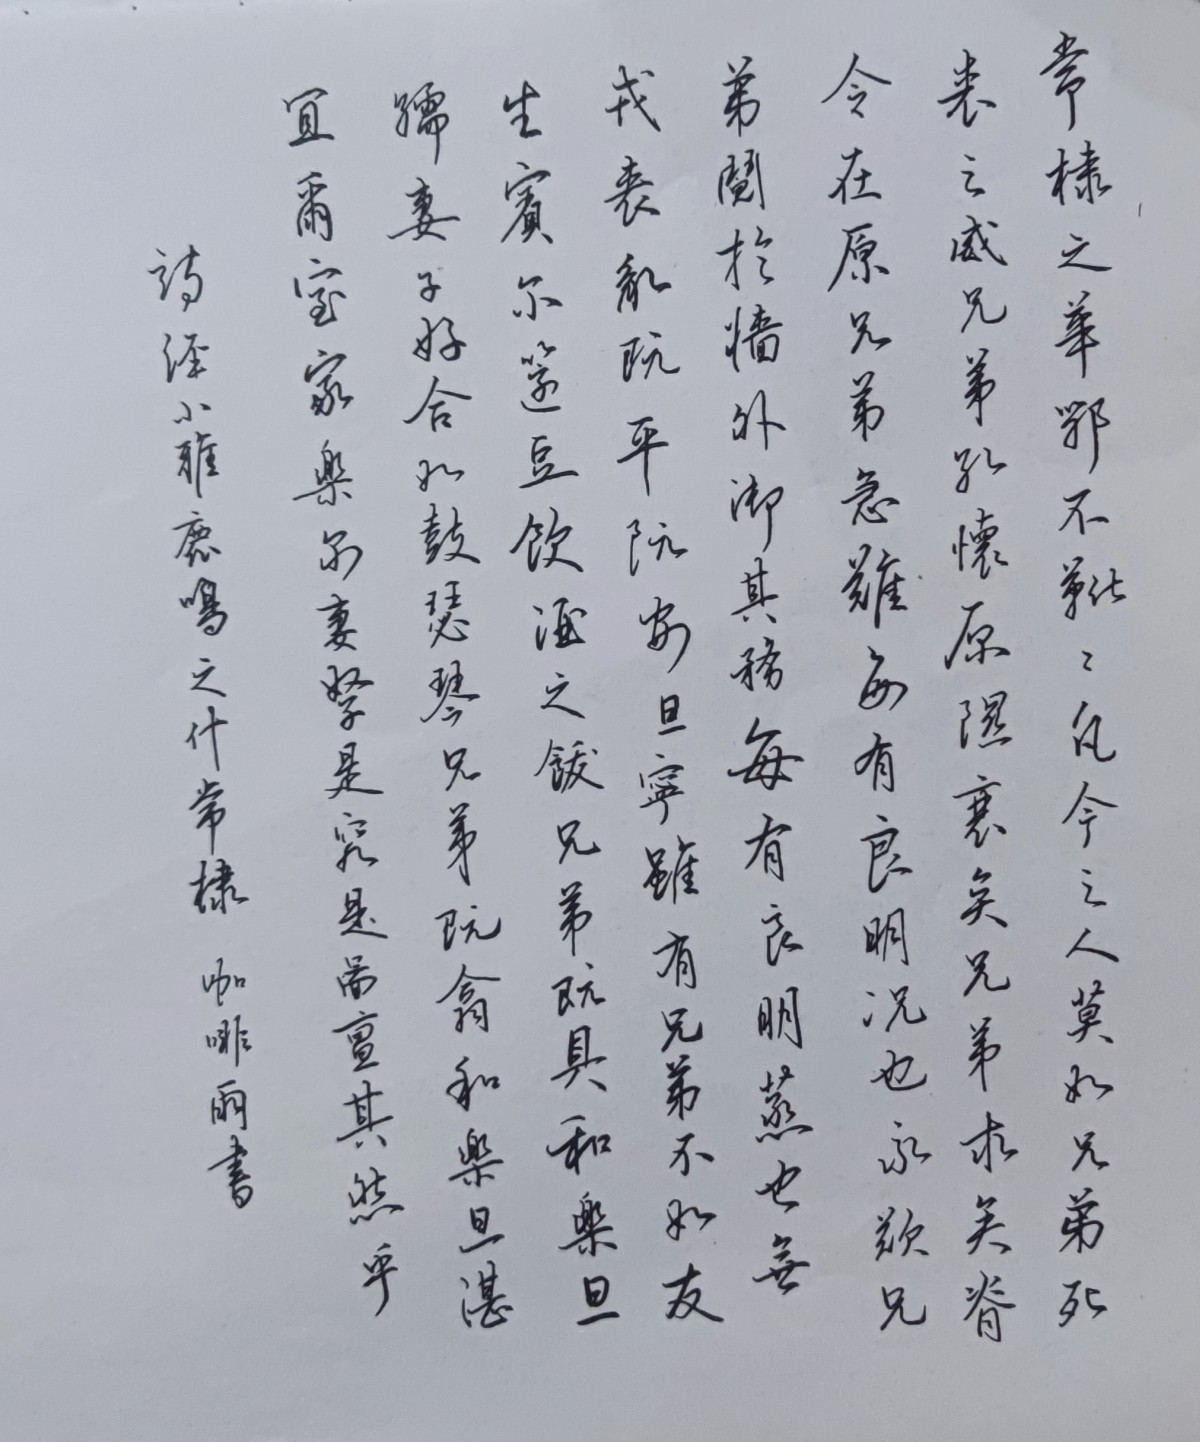 常棣之華鄂不韡〻凡今之人莫如兄弟死
喪之威兄弟孔懷原隰裒矣兄弟求矣脊
令在原兄弟急難每有良明况也永歎兄
弟鬩於牆外御其務每有良明烝也無
戎喪亂既平既安旦寧雖有兄弟不如友
生賓尔籩豆飲酒之飫兄弟既具和樂旦
孺妻子好合如鼓瑟琴兄弟既翕和樂旦湛
宜爾室家樂尔妻孥是究是啚亶其然乎
詩經小雅鹿鳴之什常棣 咖啡雨書